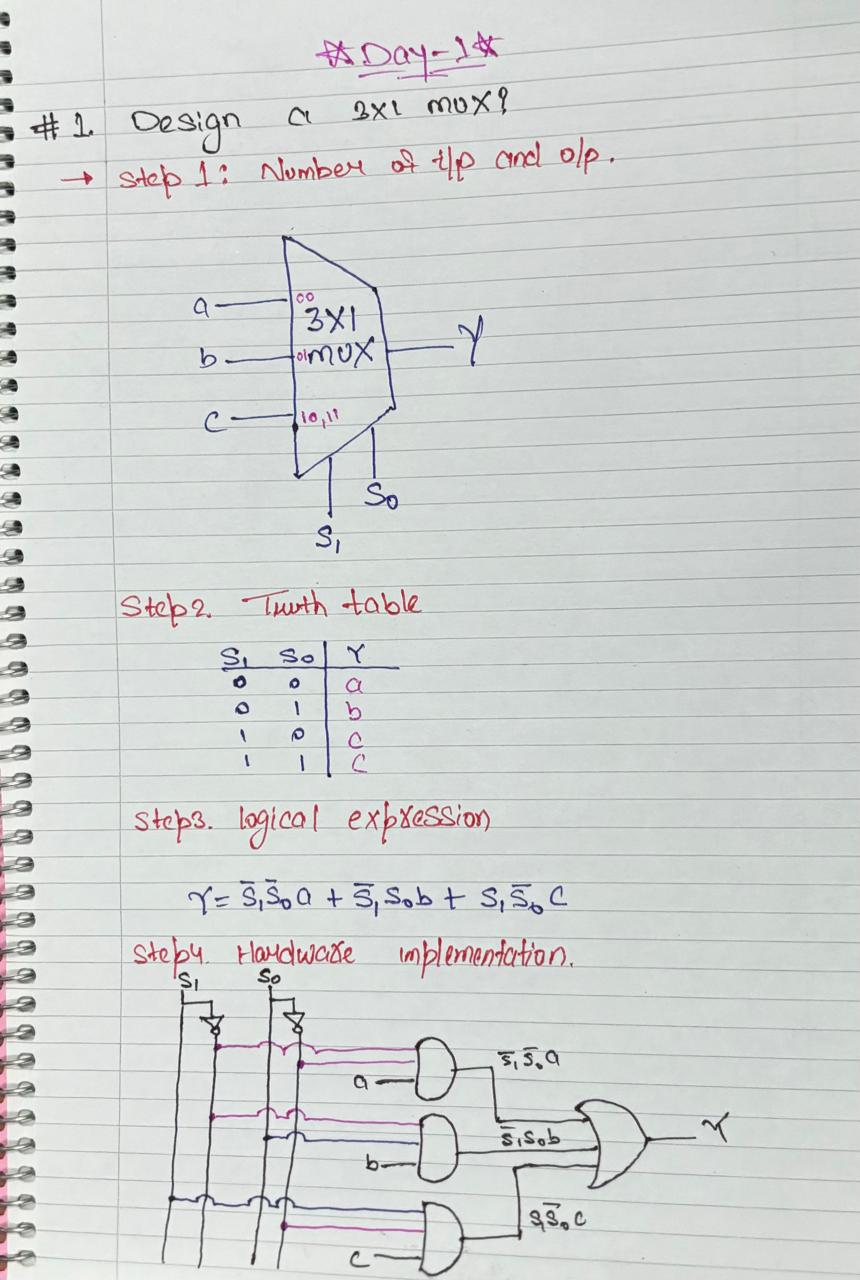 ☆Day-1☆
# 1. Design a 3x1 mux?
→ Step 1: Number of i/p and o/p.
a 00
3X1
b 01 MUX Y
C 10,11
S₀
S₁
Step2. Truth table
S₁ S₀ Y
0 0 a
0 1 b
1 0 C
1 1 C
Step3. logical expression
Y = S̅₁S̅₀a + S̅₁S₀b + S₁S̅₀C
Step4. Hardware implementation.
S₁ S₀
S̅₁S̅₀a
a
Y
S̅₁S₀b
b
S₁S̅₀C
C